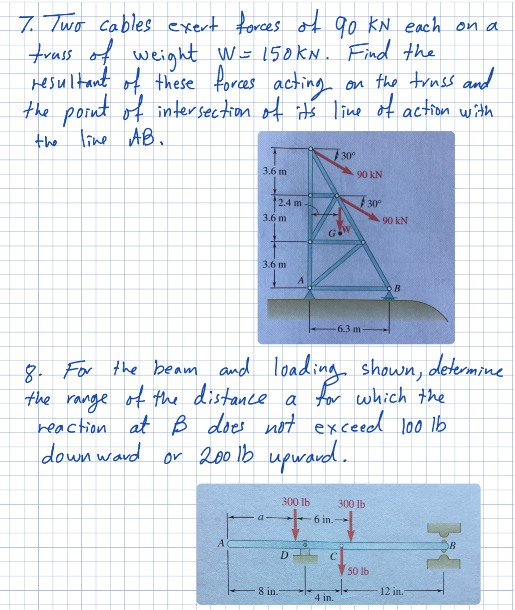 7. Two cables exert forces of 90 KN each on a
truss of weight W = 150 KN. Find the
resultant of these forces acting on the truss and
the point of intersection of its line of action with
the line AB.
30°
3.6 m
90 kN
2.4 m
30°
3.6 m
90 kN
G W
3.6 m
A
B
6.3 m
8. For the beam and loading shown, determine
the range of the distance a for which the
reaction at B does not exceed 100 lb
downward or 200 lb upward.
300 lb 300 lb
a 6 in.
A B
D C
50 lb
8 in. 4 in. 12 in.